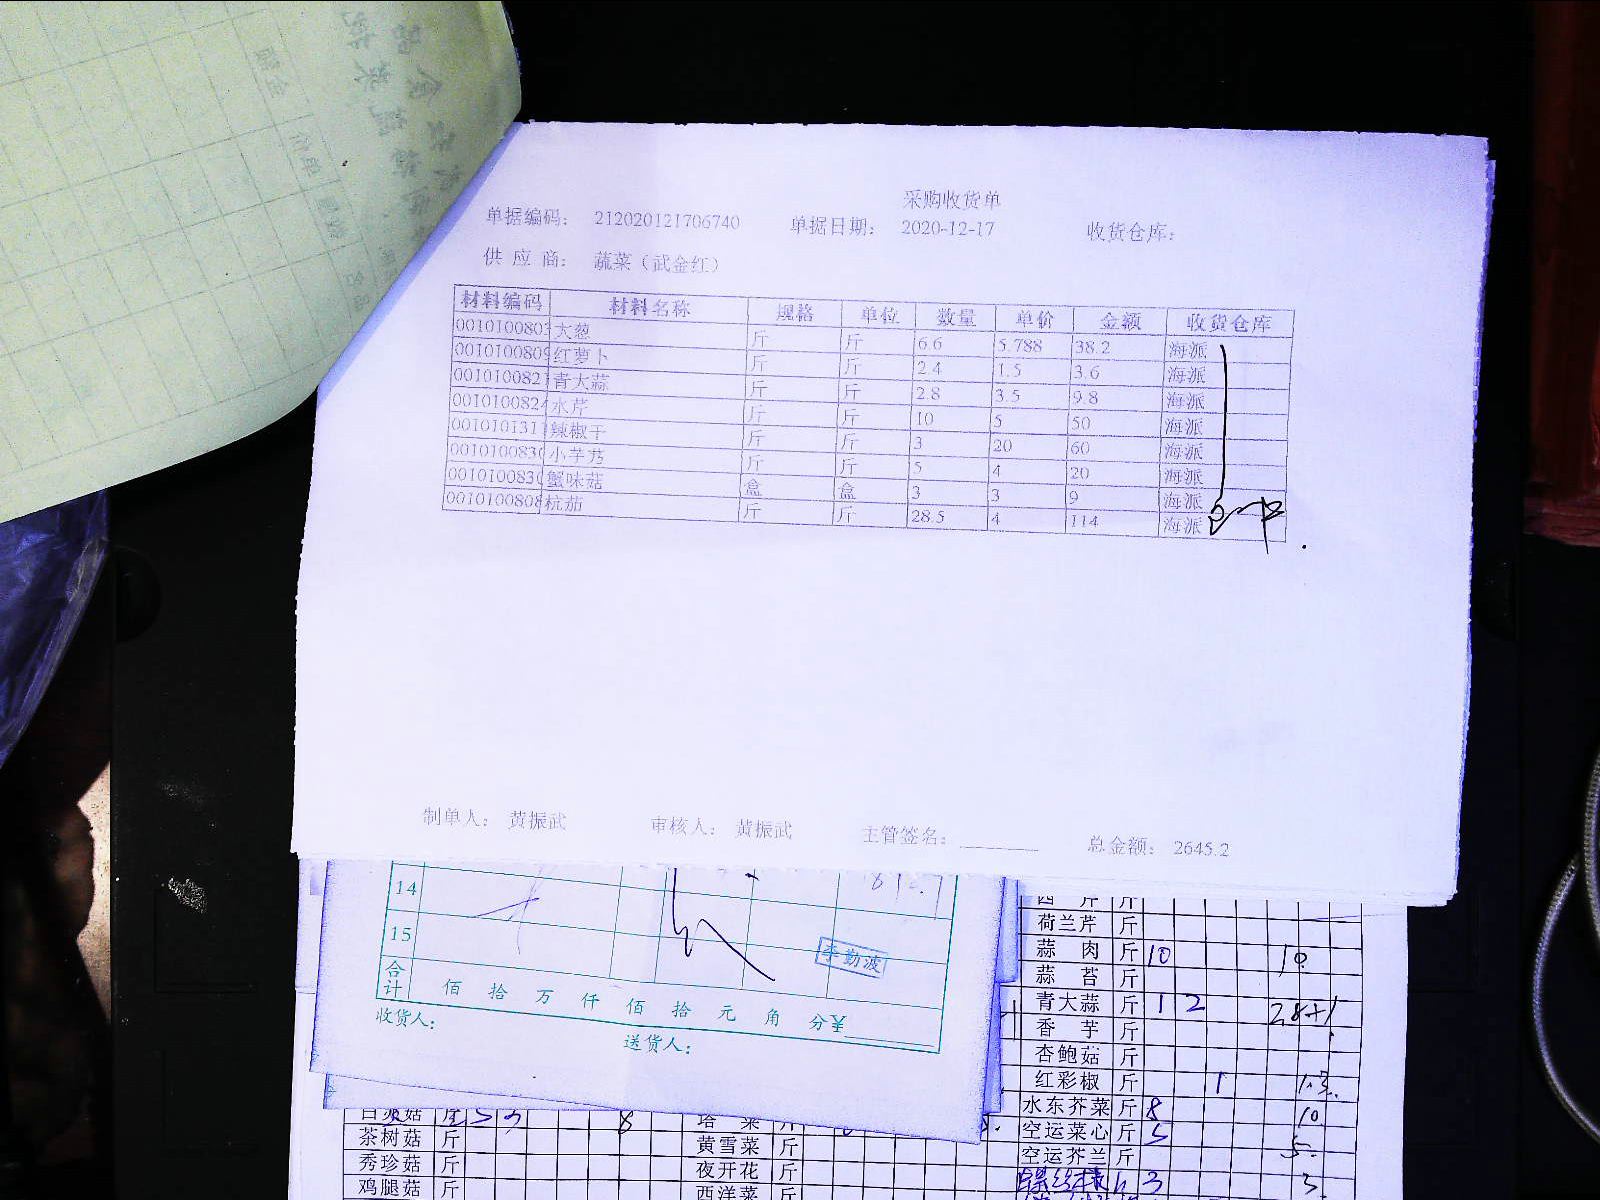 采购收货单
单据编码： 212020121706740 单据日期： 2020-12-17 收货仓库：
供 应 商： 蔬菜（武金红）
材料编码 材料名称 规格 单位 数量 单价 金额 收货仓库
0010100803 大葱 斤 斤 6.6 5.788 38.2 海派
0010100809 红萝卜 斤 斤 2.4 1.5 3.6 海派
001010082 青大蒜 斤 斤 2.8 3.5 9.8 海派
0010100824 水芹 斤 斤 10 5 50 海派
001010131 辣椒干 斤 斤 3 20 60 海派
001010083 小芋艿 斤 斤 5 4 20 海派
001010083 蟹味菇 盒 盒 3 3 9 海派
0010100808 杭茄 斤 斤 28.5 4 114 海派
制单人： 黄振武 审核人： 黄振武 主管签名： 总金额： 2645.2
14
15
李勤波
合计 佰 拾 万 仟 佰 拾 元 角 分¥
收货人： 送货人：
西 芹 斤
荷兰芹 斤
蒜 肉 斤 10 10
蒜 苔 斤
青大蒜 斤 1 2 28+1
香 芋 斤
杏鲍菇 斤
红彩椒 斤 1
水东芥菜 斤 8 10
空运菜心 斤 5 5
空运芥兰 斤
3 3
菇 8
茶树菇 斤
秀珍菇 斤
鸡腿菇 斤
塔 菜 斤
黄雪菜 斤
夜开花 斤
西洋菜 斤